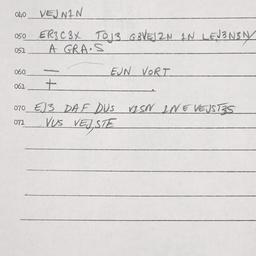 040 VEJN1N
050 ER1C3X TOJ3 G3VEJ2N 1N LEJ3NSN/
051 A GRA.S
060 — EJN VORT
061 + .
070 EJ3 DAF DUS V1SN 1NE VEJST3S
071 VUS VEJSTE